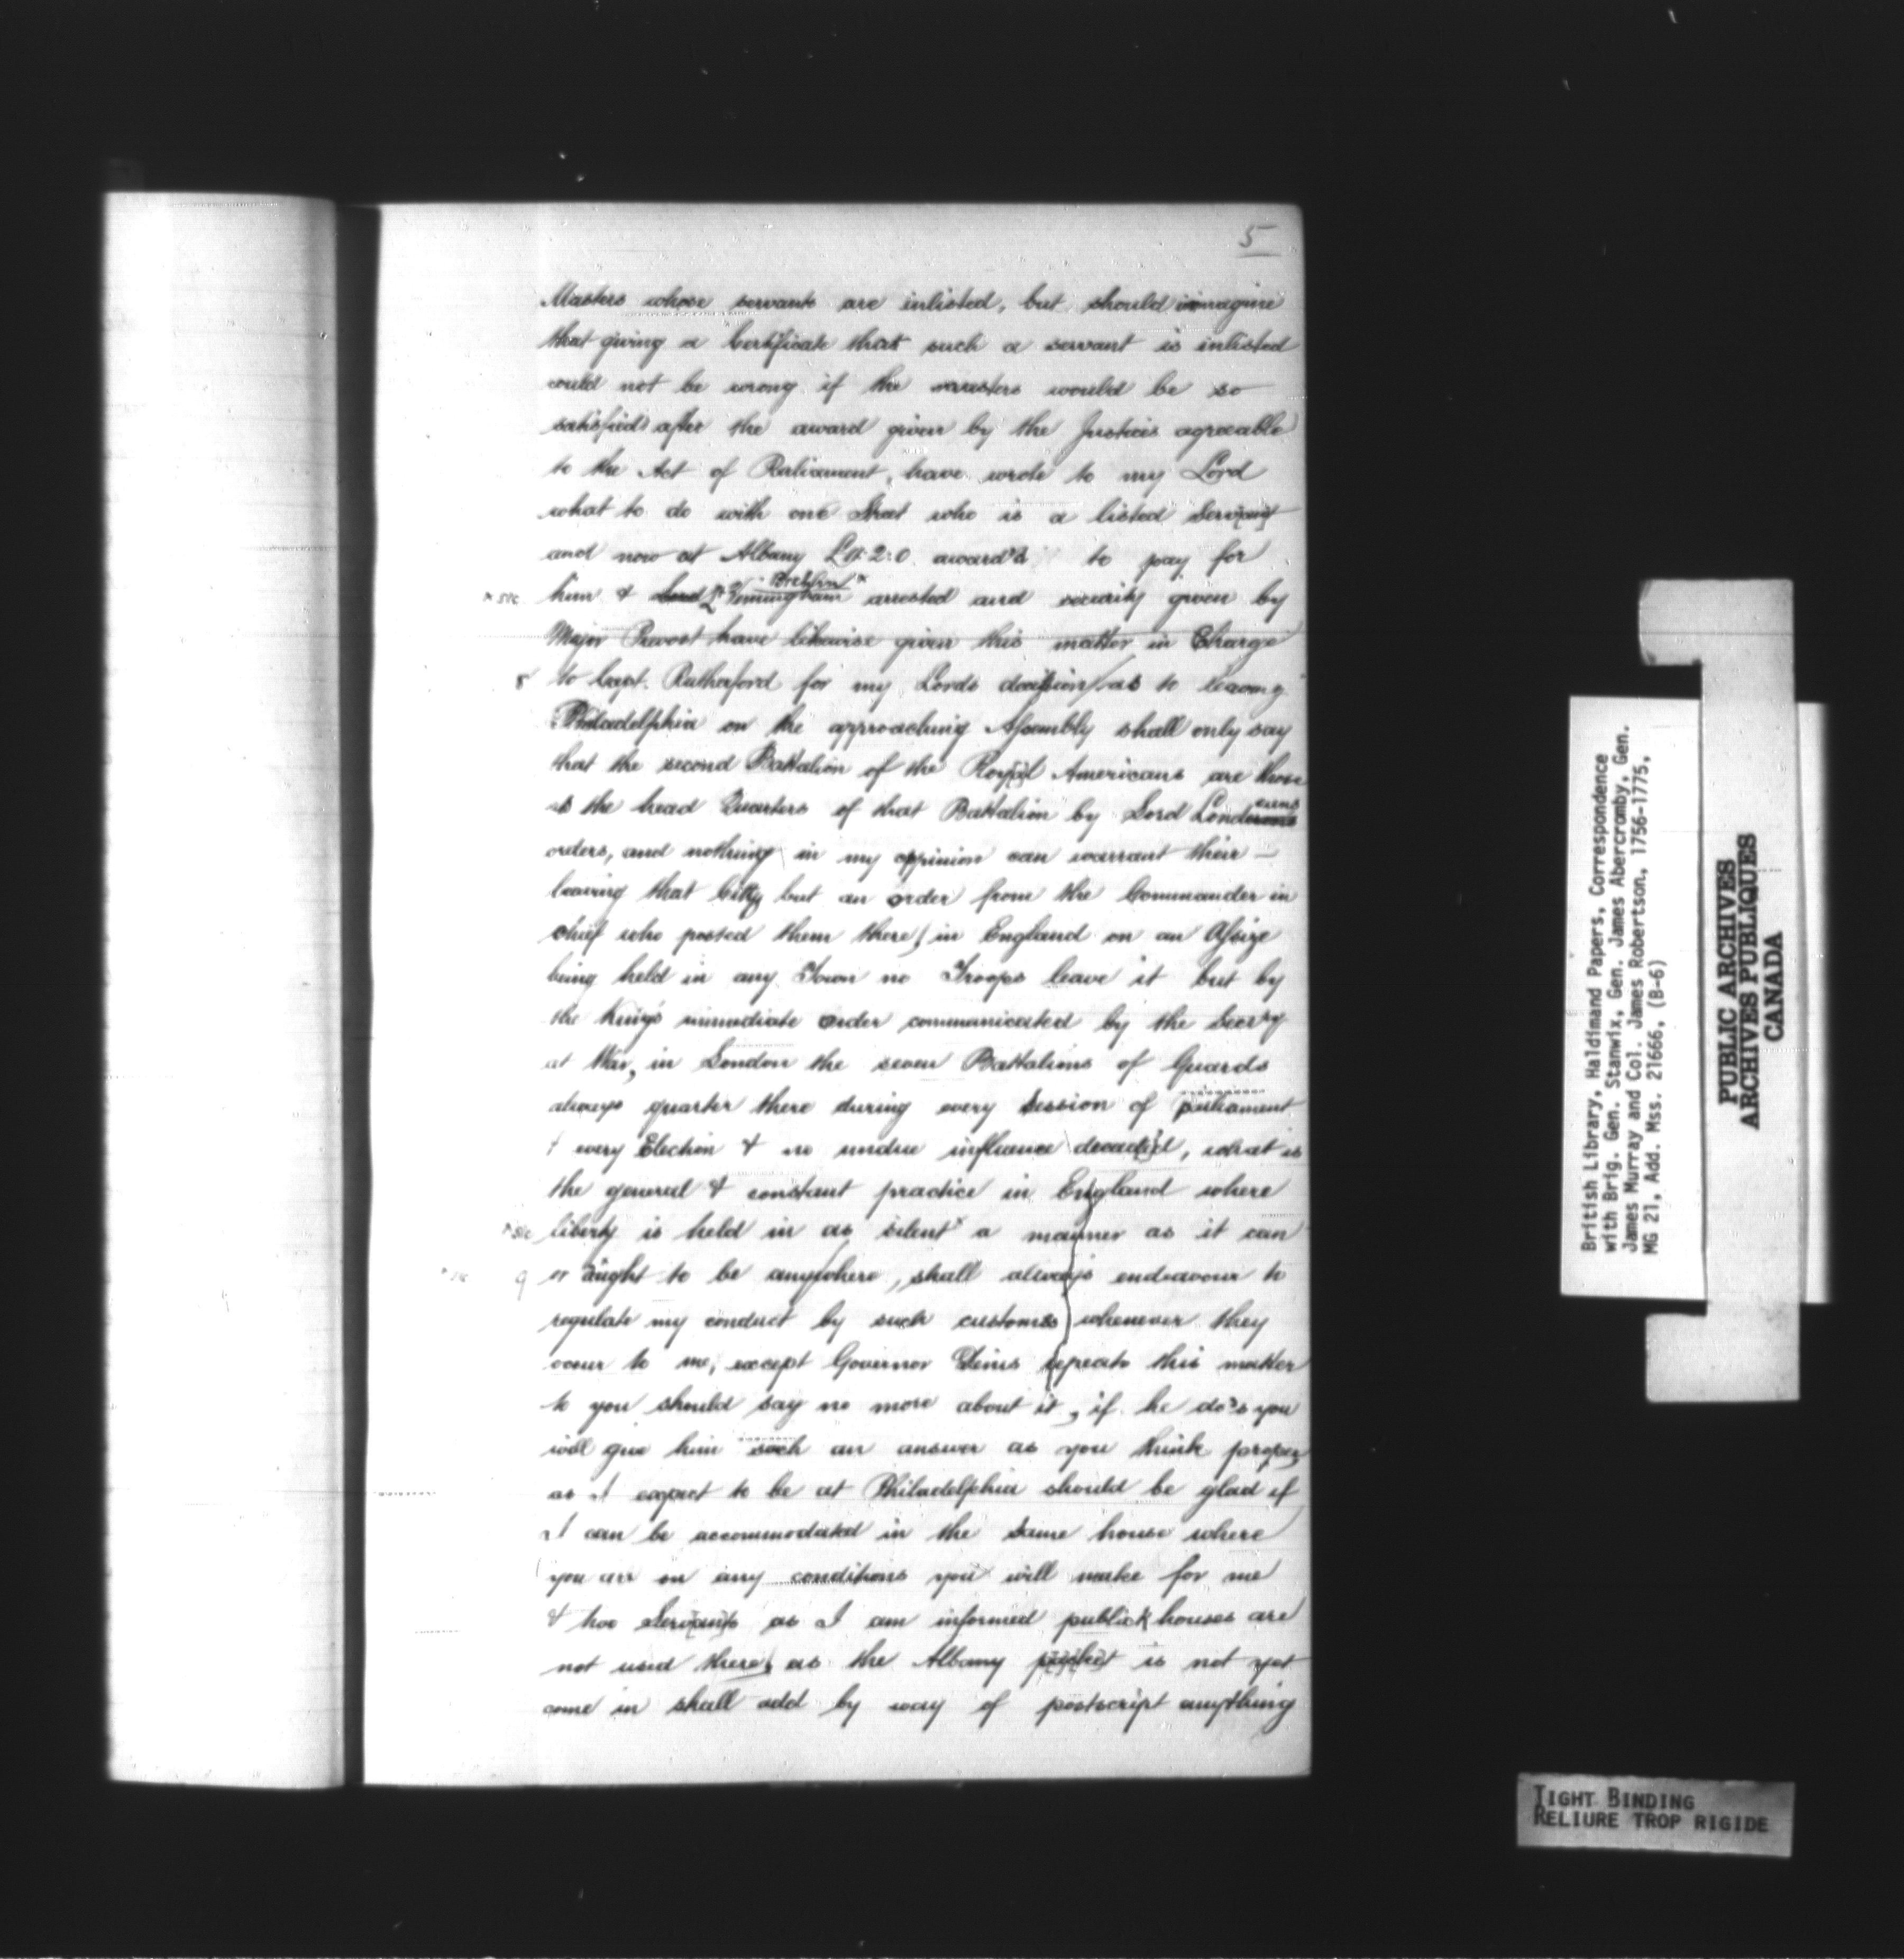 5
Masters whose servants are inlisted, but should immagine
that giving a Certificate that such a servant is inlisted
could not be wrong if the masters would be so
satisfied after the award given by the Justices agreeable
to the Act of Parliament, have wrote to my Lord
what to do with one who is a listed Servant
and now at Albany award'd to pay for
* sic him & Lt arrested and security given by
Major Prevost have likewise given this matter in Charge
8 to Capt. Rutherford for my Lords decision/as to leaving
Philadelphia on the approaching Assembly shall only say
that the second Battalion of the Royal Americans are there
as the head Quarters of that Battalion by Lord Loudouns
orders, and nothing in my oppinion can warrant their —
leaving that Citty but an order from the Commander in
chief who posted them there, in England on an Assize
being held in any Town no Troops leave it but by
the King's immediate order communicated by the Secr'y
at War, in London the seven Battalions of Guards
always quarter there during every Session of parliament
& every Election & no undue influence, what is
the general & constant practice in England where
* sic liberty is held in as silent* a manner as it can
9 or aught to be anywhere, shall always endeavour to
regulate my conduct by such customs whenever they
occur to me, except Governor Deins repeats this matter
to you should say no more about it, if he do's you
will give him such an answer as you think proper
as I expect to be at Philadelphia should be glad if
I can be accommodated in the same house where
you are on any conditions you will make for me
& two Servants as I am informed publick houses are
not used there, as the Albany packet is not yet
come in shall add by way of postscript anything
British Library, Haldimand Papers, Correspondence
with Brig. Gen. Stanwix, Gen. James Abercromby, Gen.
James Murray and Col. James Robertson, 1756-1775,
MG 21, Add. Mss. 21666, (B-6)
PUBLIC ARCHIVES
ARCHIVES PUBLIQUES
CANADA
TIGHT BINDING
RELIURE TROP RIGIDE